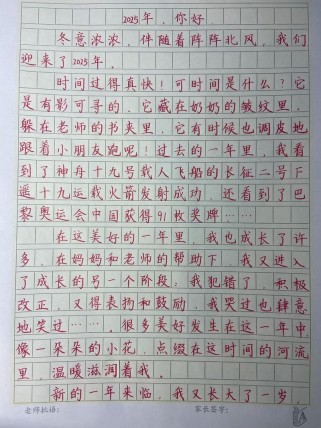 2025年，你好
冬意浓浓，伴随着阵阵北风，我们
迎来了2025年。
时间过得真快！可时间是什么？它
是有影可寻的，它藏在奶奶的皱纹里，
躲在老师的书夹里，它有时候也调皮地
跟着小朋友跑呢！过去的一年里，我看
到了神舟十九号载人飞船的长征二号下
遥十九运载火箭发射成功，还看到了巴
黎奥运会中国获得91枚奖牌……
在这美好的一年里，我也成长了许
多，在妈妈和老师的帮助下，我又进入
了成长的另一个阶段：我犯错了，积极
改正，又得表扬和鼓励，我哭过也肆意
地笑过……，很多美好发生在这一年中
像一朵朵的小花，点缀在这时间的河流
里，温暖滋润着我。
新的一年来临，我又长大了一岁，
老师批语： 家长签字：